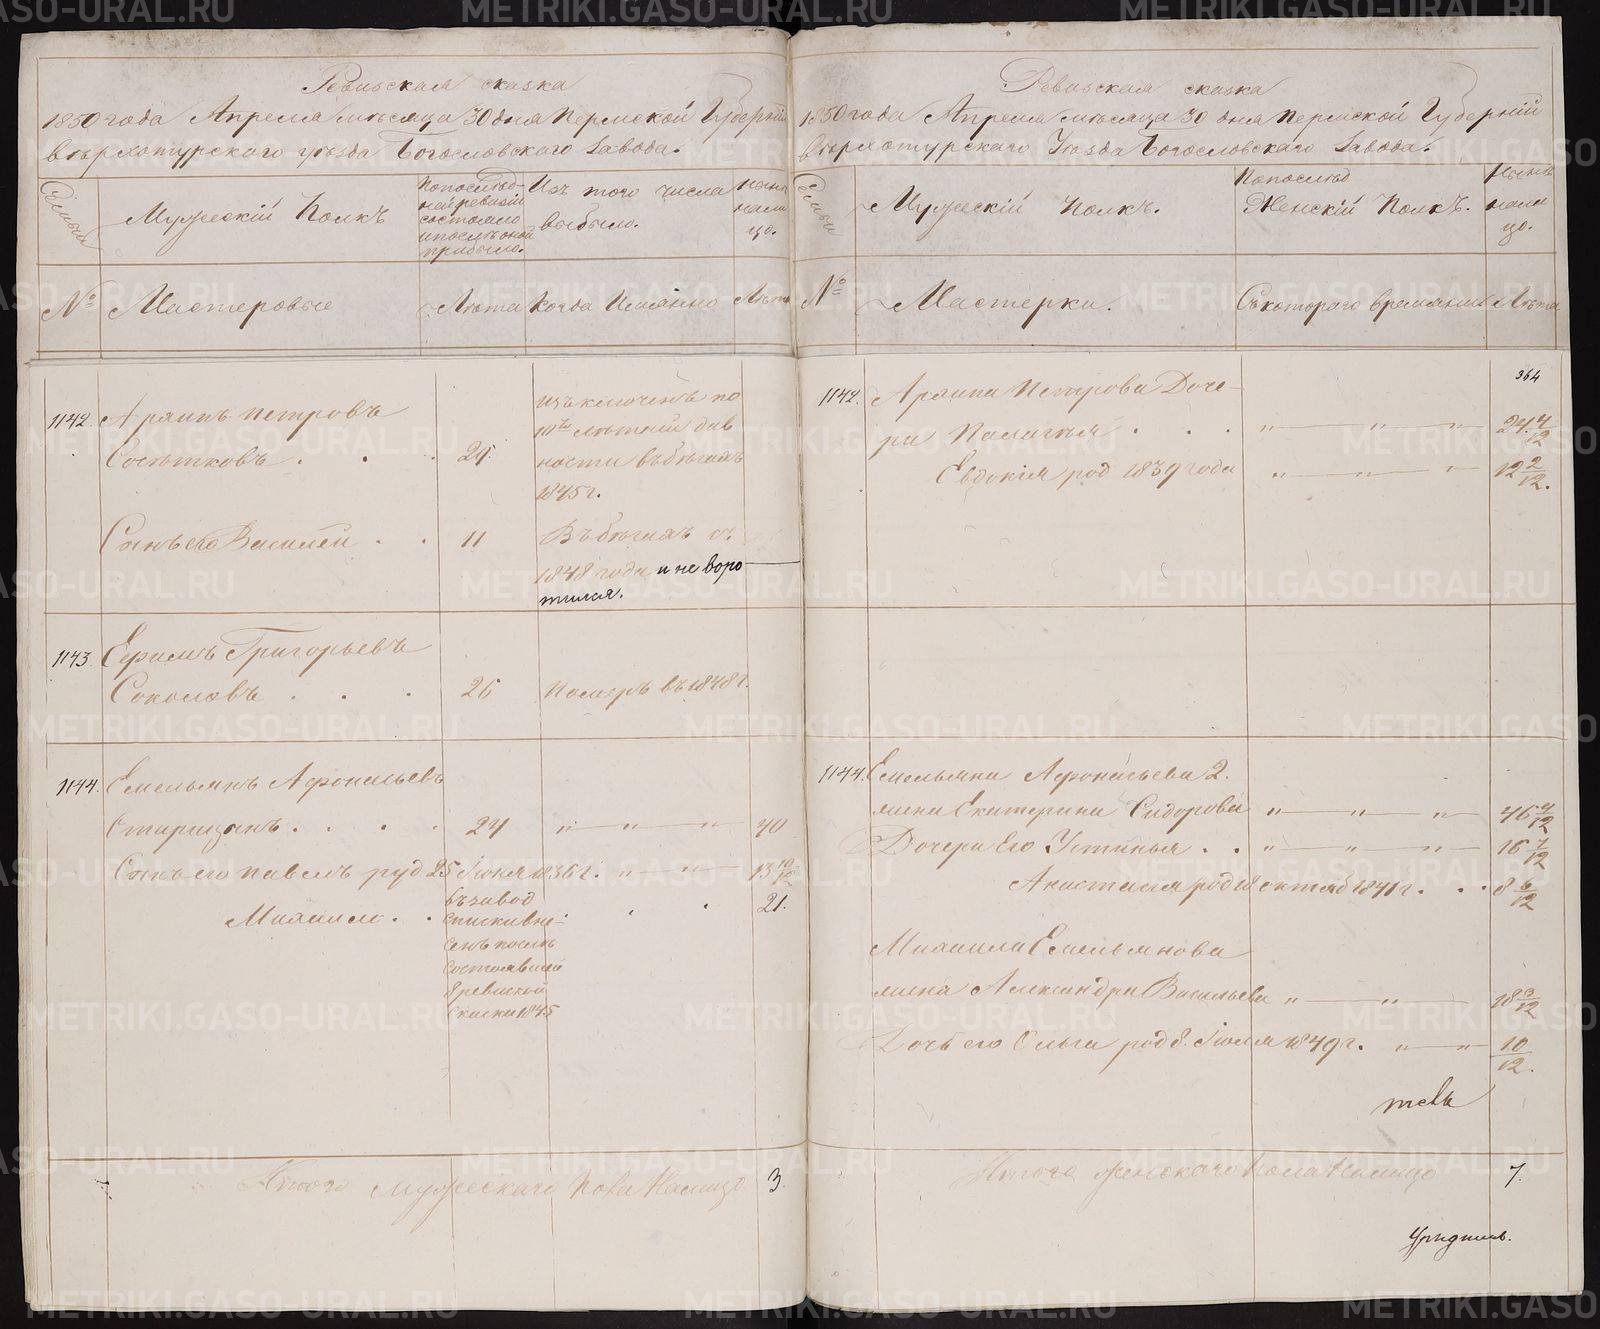 Ревизская сказка
1850 года Апреля месяца 30 дня Пермской Губерніи
Верхотурскаго уѣзда Богословскаго завода.
Семьи
Мужескій полкъ
По послѣд-
ней ревизіи
состояло
и послѣ оной
прибыло.
Изъ того числа
выбыло.
нынѣ
нали
цо.
№
Мастеровые
Лѣта
Когда имянно
Лѣта
1142.
Архипъ Петровъ
24
изъключенъ по
10ти лѣтней дав
ности въ бѣгахъ
1845 г.
Сынъ его Василей
11
Въ бѣгахъ съ
1848 года и не воро
тился.
1143.
Ефимъ Григорьевъ
Соколовъ
26
Померъ въ 1848 г.
1144.
Емельянъ Афонасьевъ
24
" " "
40
Сынъ его Павелъ род 25 Іюня 1836 г. " "
13 10/12
Михаило
въ завод
списки вне
сенъ послѣ
состоявшей
8 ревизкой
сказки 1845
21.
Итого мужескаго пола налицо
3.
Ревизская сказка
1850 года Апреля месяца 30 дня Пермской Губерніи
Верхотурскаго Уѣзда Богословскаго завода.
Семьи
Мужескій полкъ.
По послѣд
Женскій полкъ.
Нынѣ
нали
цо.
№
Мастерки.
Съ котораго времяни
Лѣта
364
1142.
Архипа Петрова Доче-
ри Палагѣя
" " "
24 4/12
Евдокія род 1839 года
" " "
12 2/12.
1144.
Емельяна Афонасьева 2.
жена Екатерина Сидорова
" " "
46 4/12
Дочери его Устинья
" " "
16 7/12
Анастасія род 18 октяб 1841 г.
8 6/12
Михаила Емельянова
жена Александра Васильева
" "
18 3/12
Дочь его Ольга род 8. Іюля 1849 г.
" "
10/12.
Итого женскаго пола налицо
7.